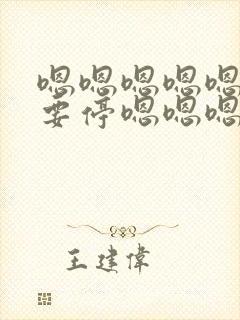 嗯嗯嗯嗯嗯
要停嗯嗯嗯
王建偉